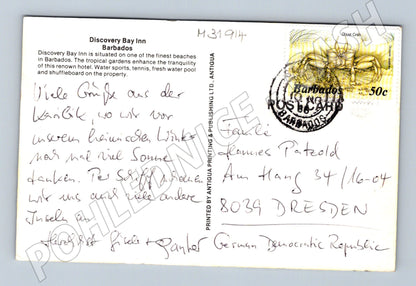 Discovery Bay Inn
Barbados
Discovery Bay Inn is situated on one of the finest beaches
in Barbados. The tropical gardens enhance the tranquility
of this renown hotel. Water sports, tennis, fresh water pool
and shuffleboard on the property.
M31914
Viele Grüße aus der
Karibik, wo wir vor
unserem heimischen Winter
noch mal viel Sonne
tanken. Per Schiff
wir uns noch viele andere
Inseln an
Herzlichst Gisela + Günter
PRINTED BY ANTIGUA PRINTING & PUBLISHING LTD., ANTIGUA
Barbados
50c
POSTCARD
BARBADOS
Familie
Hannes Patzold
Am Hang 34/16-04
8039 DRESDEN
German Democratic Republic
POHLEDNICE
POSCH